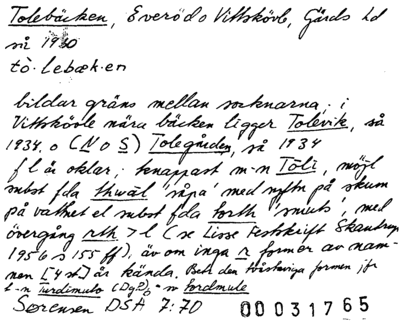 Tolebäcken, Everöd o Vittskövle, Gärds hd
så 1930
tò·lebæk·en
bildar gräns mellan socknarna; i
Vittskövle nära bäcken ligger Tolevik, så
1934, o (N o S) Tolegården, så 1934
f l är oklar; knappast m-n Tōli, möjl
subst fda thwāl 'såpa' med syftn på skum
på vattnet el subst fda forth 'smuts', med
övergång rth > l (se Lisse Festskrift Skautrup
1956 s 155 ff), äv om inga r former av nam-
nen [4 st] är kända. Betr den tvåstaviga formen jfr
t-n Turdimulo (DgP) = Tordmule
Sørensen DSÅ 7:70
00031765